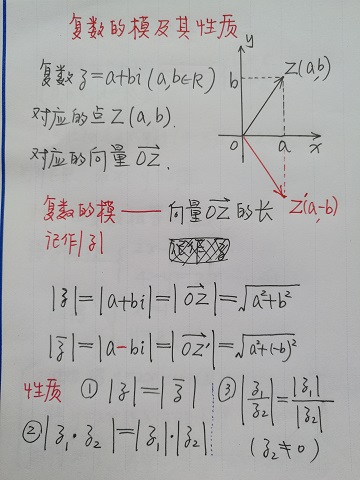 复数的模及其性质
复数 z=a+bi(a,b∈R)
对应的点Z(a,b).
对应的向量 OZ→.
y
b
Z(a,b)
O
a
x
Z'(a,-b)
复数的模——向量OZ→的长
记作|z|
|z|=|a+bi|=|OZ→|=√(a²+b²)
|z̄|=|a-bi|=|OZ'→|=√(a²+(-b)²)
性质 ① |z|=|z̄|
② |z₁·z₂|=|z₁|·|z₂|
③ |z₁/z₂|=|z₁|/|z₂|
(z₂≠0)